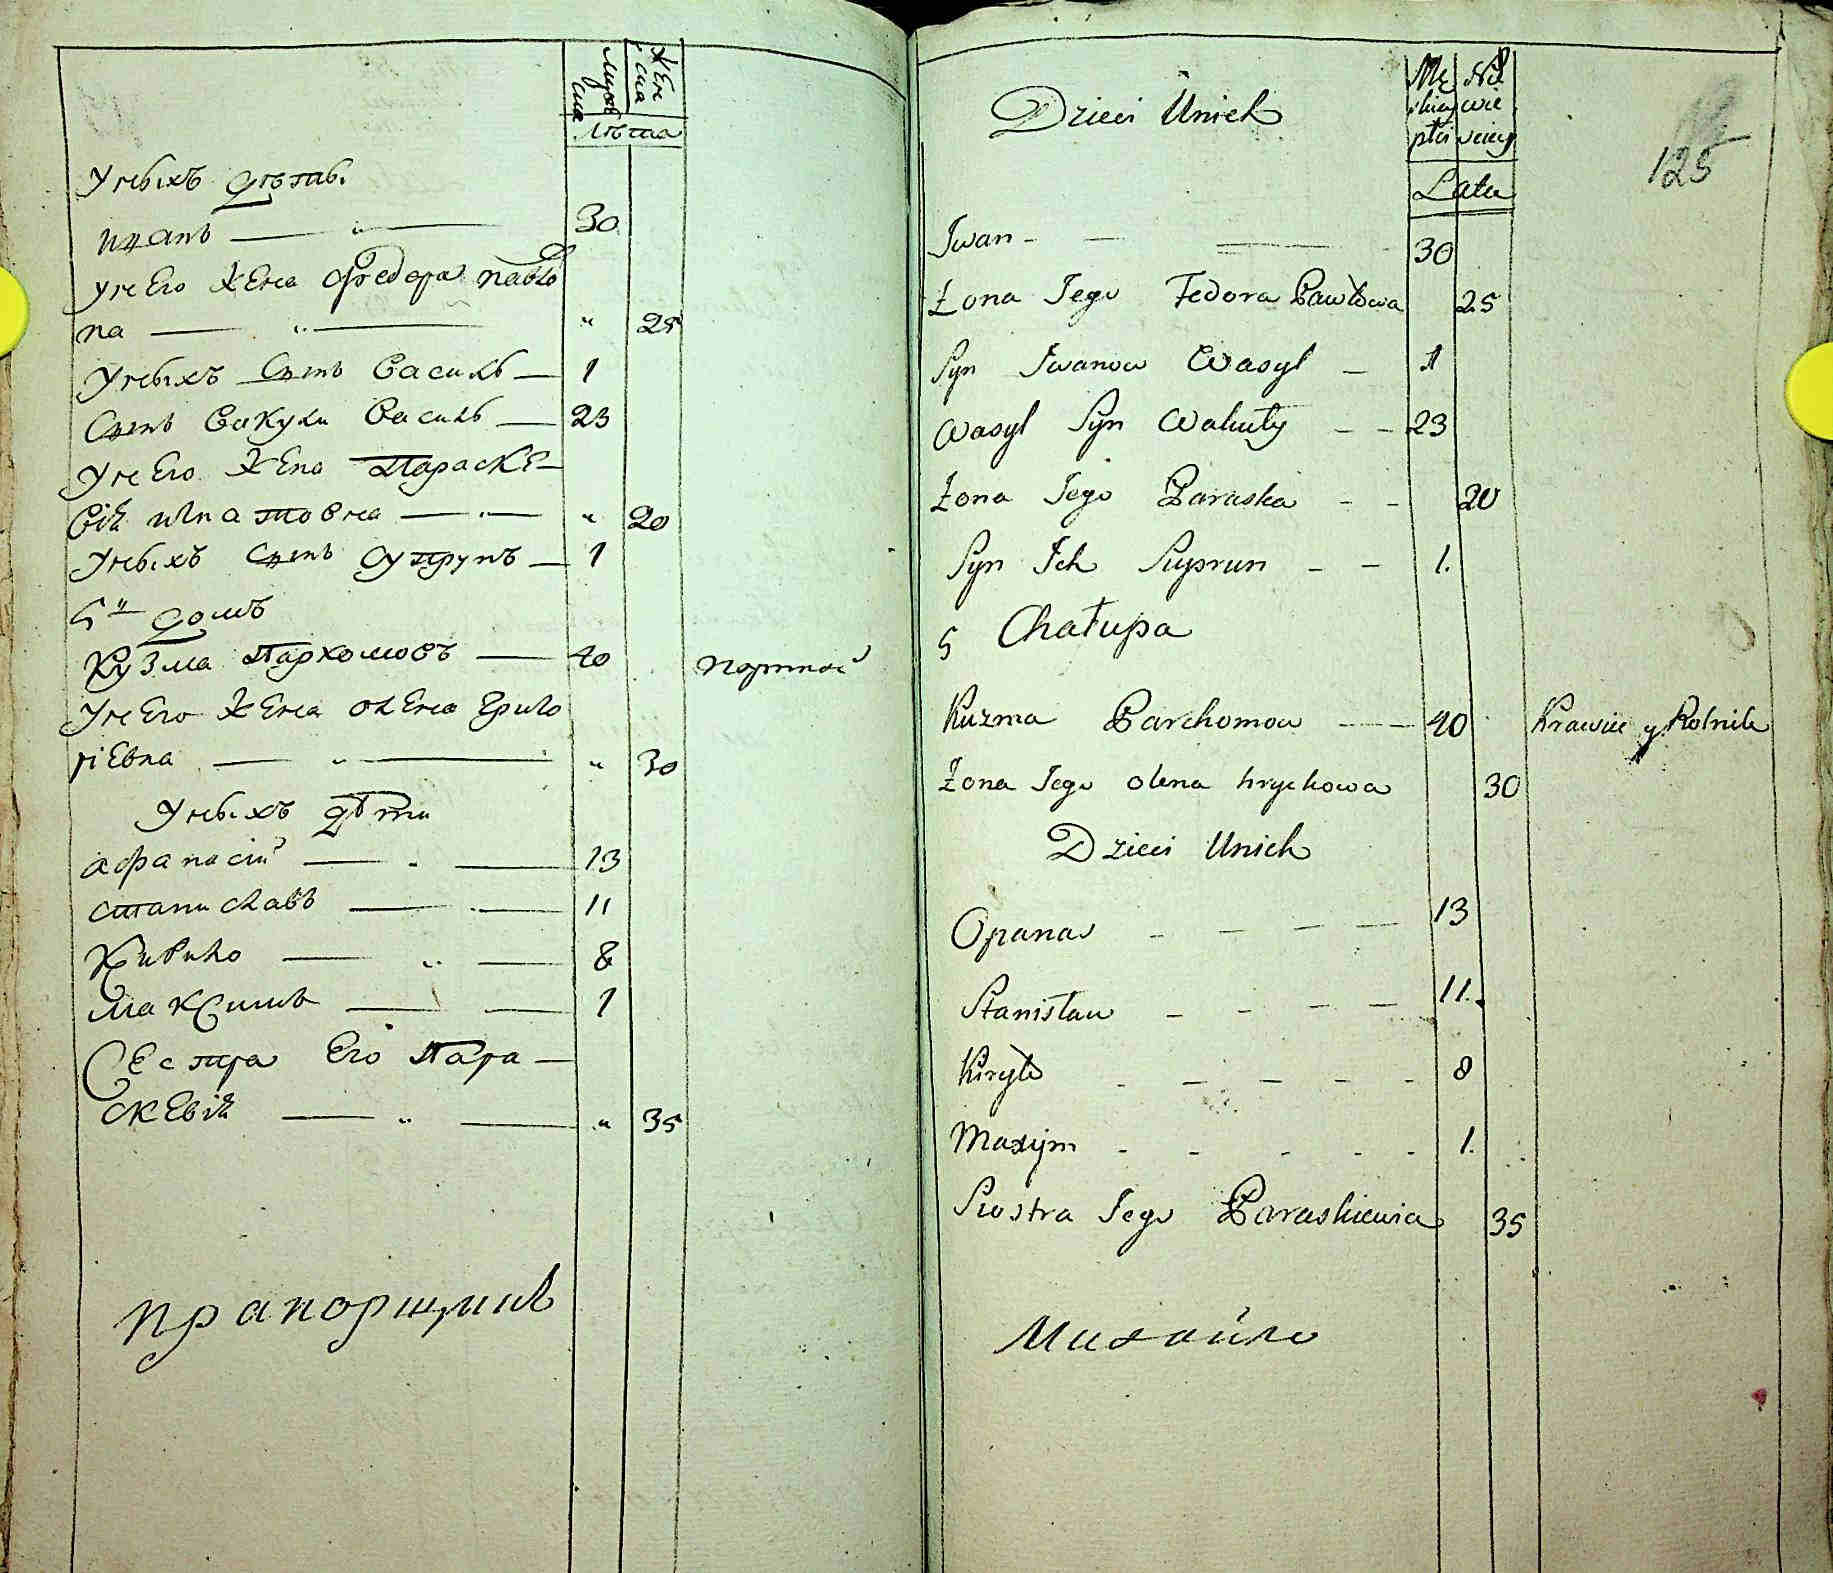 Мужеска
Женска
Лѣта
У нихъ дѣти
Иванъ — 30
У него жена Федора Павло
на — " 25
У нихъ сынъ Василь — 1
Сынъ Вакулы Василь — 23
У него жена Параске-
вія Игнатовна — " 20
У нихъ сынъ Супрунъ — 1
5й домъ
Кузма Пархомовъ — 40 портной
У него жена Олена Григо
ріевна — " 30
У нихъ дѣти
Афанасій — 13
Станиславъ — 11
Кирило — 8
Максимъ — 1
Сестра его Пара-
скевія — " 35
прапорщикъ
Dzieci Unich
Mę Nie
skiey wie
płci sciey
Lata
125
Iwan - 30
Żona Jego Fedora Pawłowa 25
Syn Iwanow Wasyl - 1
Wasyl Syn Wakuły - - 23
Żona Jego Paraska - - 20
Syn Ich Suprun - - 1.
5 Chałupa
Kuzma Parchomow - 40 Krawiec y Rolnik
Żona Jego Olena hrychowa 30
Dzieci Unich
Opanas - - - - 13
Stanisław - - - - 11.
Kiryło - - - - - 8
Maxym - - - - - 1.
Siostra Jego Paraskiewia 35
Михайло